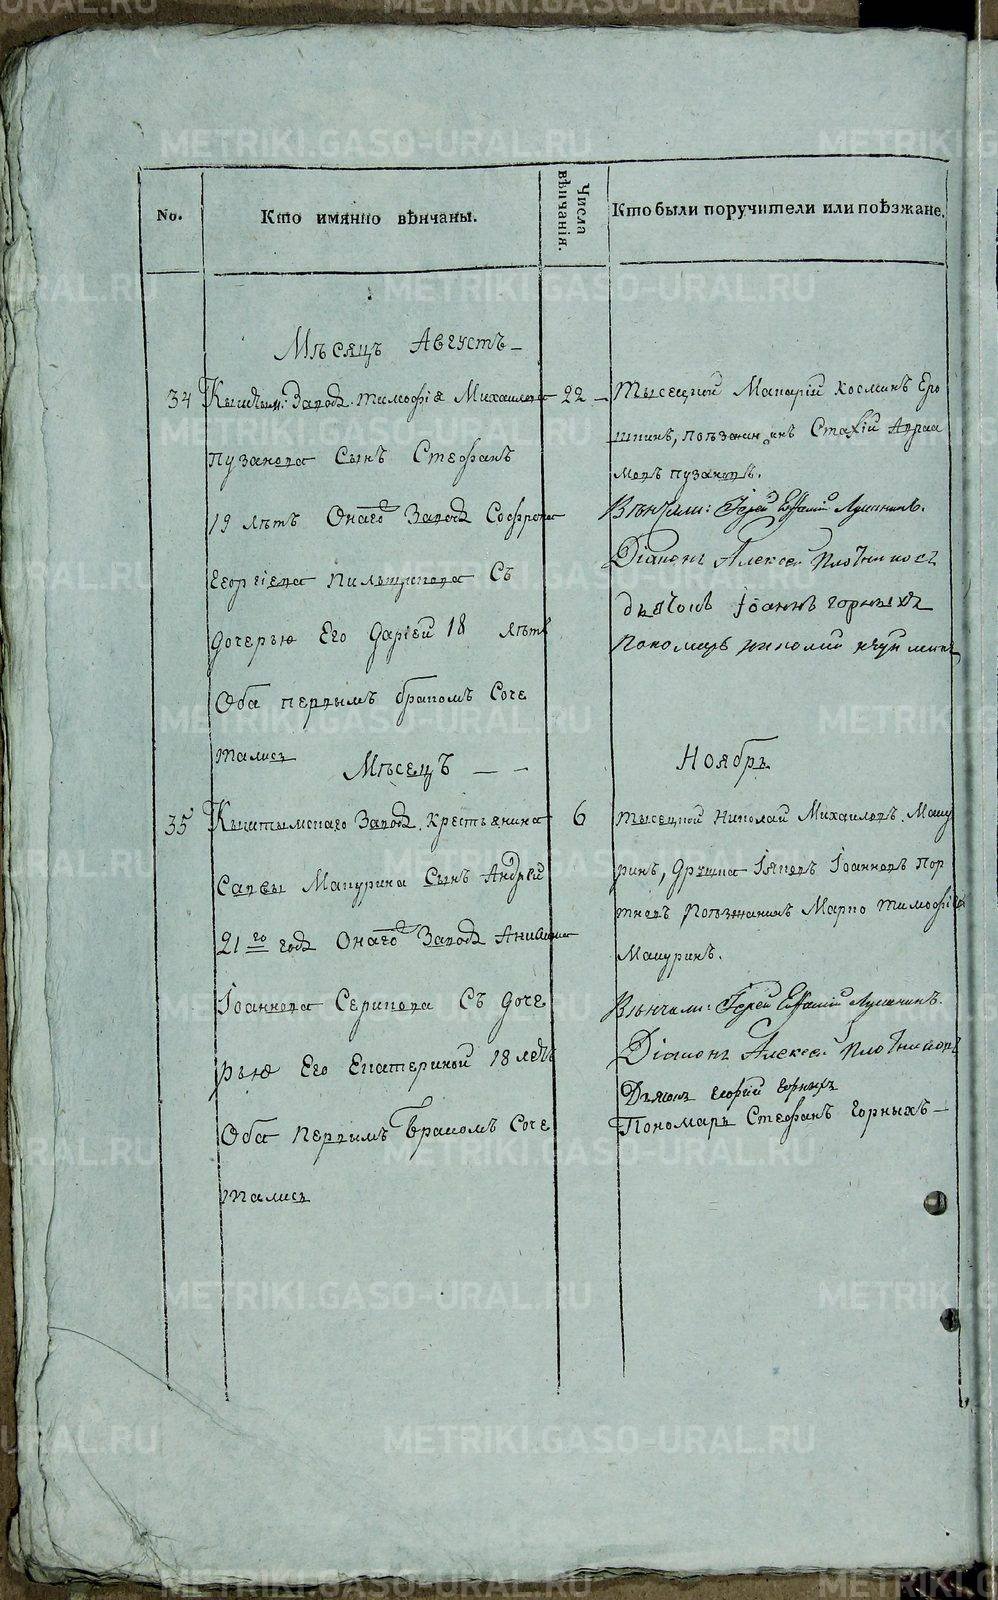 No.
Кто имянно вѣнчаны.
Числа вѣнчанія.
Кто были поручители или поѣзжане.
Мѣсяцъ Августъ
34
Тимофія Михаилова
Пузанова Сынъ Стефанъ
19 лѣтъ Онаго Завода Софрона
Георгіева Пильщикова Съ
дочерью Его Даріей 18 лѣтъ
Оба первымъ бракомъ Соче
тались
22
Тысецкой Макарій Космин Еро
шкинъ, поѣзжанинъ Стахій Авраа
мовъ пузановъ.
Вѣнчали: Іерей Евфимій Лушниковъ.
Діаконъ Алексей Плотниковъ
дьячокъ Іоаннъ горныхъ
Пономарь
Мѣсецъ
Ноябрь
35
Кыштымскаго Завод. крестьянина
Саввы Мазурина Сынъ Андрей
21го годъ Онаго Завода
Іоаннова Серикова Съ доче
рью Его Екатериной 18 летъ
Оба первымъ Бракомъ Соче
тались
6
Тысецкой Николай Михаиловъ
ринъ, Друшка Іяковъ Іоанновъ Пор
тновъ Поѣзжанинъ Марко Тимофѣевъ
Мазуринъ.
Вѣнчали: Іерей Евфимій Лушниковъ.
Діаконъ Алексей Плотниковъ
Дьячокъ Георгій Горныхъ
Пономарь Стефанъ Горныхъ
METRIKI.GASO-URAL.RU